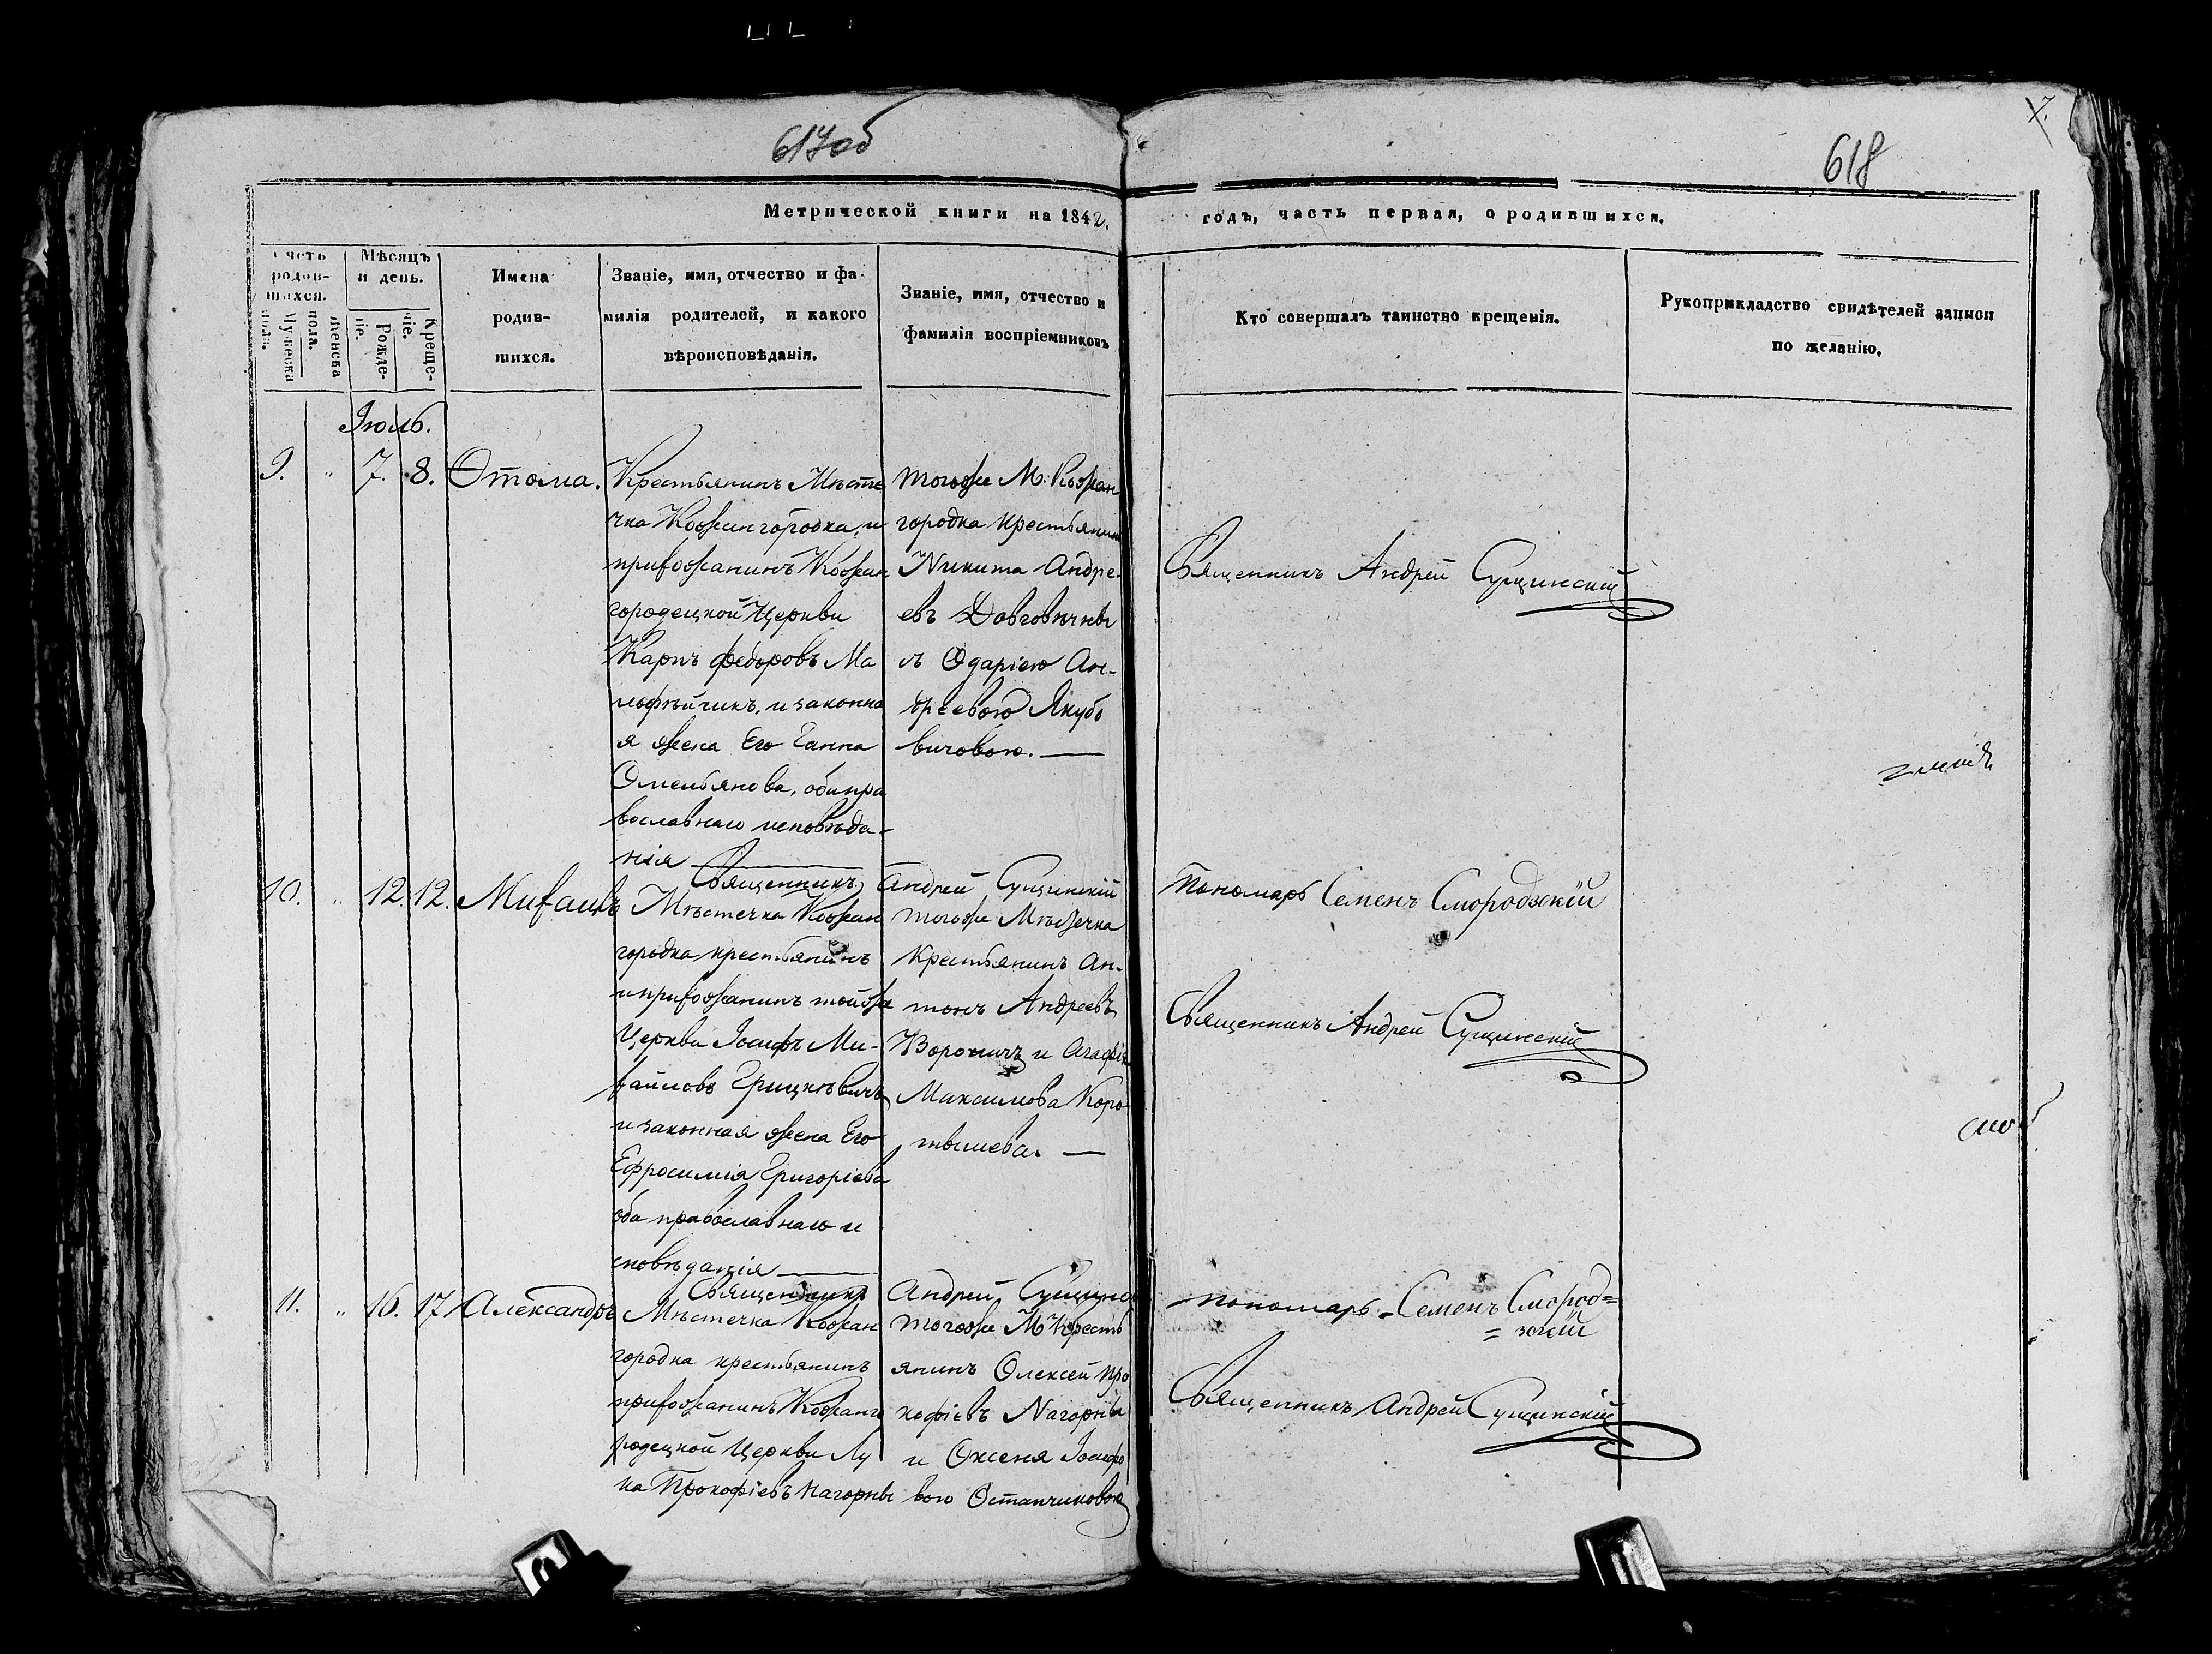 617об
618
7.
Метрической книги на 1842. годъ, часть первая, о родившихся.
Счетъ родив-шихся.
Мужеска пола.
Женска пола.
Мѣсяцъ и день.
Рожде-ніе.
Креще-ніе.
Имена
родив-
шихся.
Званіе, имя, отчество и фа-
милія родителей, и какого
вѣроисповѣданія.
Званіе, имя, отчество и
фамилія воспріемниковъ
Кто совершалъ таинство крещенія.
Рукоприкладство свидѣтелей записи
по желанію.
Іюль.
9. " 7. 8. Ѳтома.
Крестьянинъ Мѣсте
чка Кожангородка, и
прихожанинъ Кожан
городецкой Церкви
Карпъ Федоровъ Ма
лофѣйчикъ, и законна
я жена Его Ганна
Омельянова, оби пра
вославнаго исповѣда-
нія
тогоже М: Кожан
городка крестьянин
Никита Андре-
евъ Довговѣчны
съ Одаріею Ан-
дреевою Якуб
вичовою.
Священникъ Андрей Сущинскій
10. " 12. 12. Михаилъ
Священникъ Андрей Сущинскій
Пономарь Семенъ Смородскій
Мѣстечка Кожан
городка крестьянинъ
и прихожанинъ тойже
Церкви Іосифъ Ми-
хайловъ Грицкѣвичъ
и законная жена Его
Ефросимія Григоріева
оба православнаго и
сповѣданія
тогоже Мѣстечка
Крестьянинъ Ан-
тонъ Андреевъ
Воронич и Агафія
Максимова Коро
тышева.
Священникъ Андрей Сущинскій
11. " 16. 17 Александръ
Священникъ Андрей Сущинс
пономарь Семенъ Смород=
=скій
Мѣстечка Кожан
городка крестьянинъ
прихожанинъ Кожанго
родецкой Церкви Лу
ка Прокофіевъ Нагорны
тогоже М Кресть
янинъ Олексей Про
кофіевъ Нагорны
и Оксеня Іосифо
вою Останчиковою
Священникъ Андрей Сущинскій